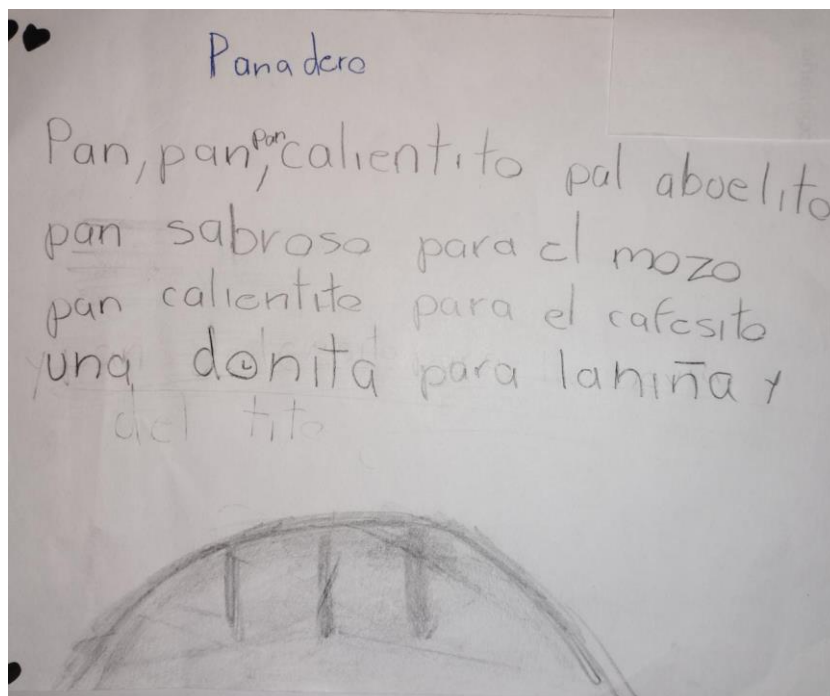 Panadero
Pan, pan, pan calientito pal abuelito
pan sabroso para el mozo
pan calientito para el cafesito
una donita para la niña y
del tito